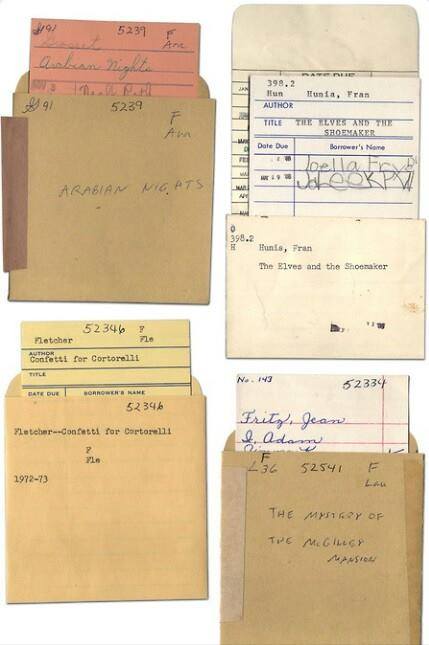 $1.91 5239 F
Arabian Nights
5239
F
ARABIAN NIGHTS
DATE DUE
398.2
Hun Hunia, Fran
AUTHOR
TITLE THE ELVES AND THE
SHOEMAKER
Date Due Borrower's Name
Joella
398.2
H Hunia, Fran
The Elves and the Shoemaker
52346 F
Fletcher Fle
AUTHOR
Confetti for Cortorelli
TITLE
DATE DUE BORROWER'S NAME
52346
Fletcher--Confetti for Cortorelli
F
Fle
1972-73
No. 143 52334
Fritz, Jean
I, Adam
F
L36 52541 F
Lau
THE MYSTERY OF
THE McGILLEY
MANSION